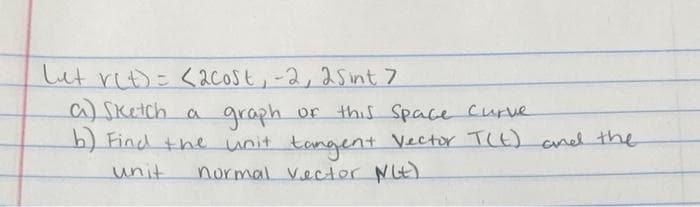 Let r(t) = <2cost, -2, 2sint>
a) Sketch a graph of this space curve
b) Find the unit tangent vector T(t) and the
unit normal vector N(t)